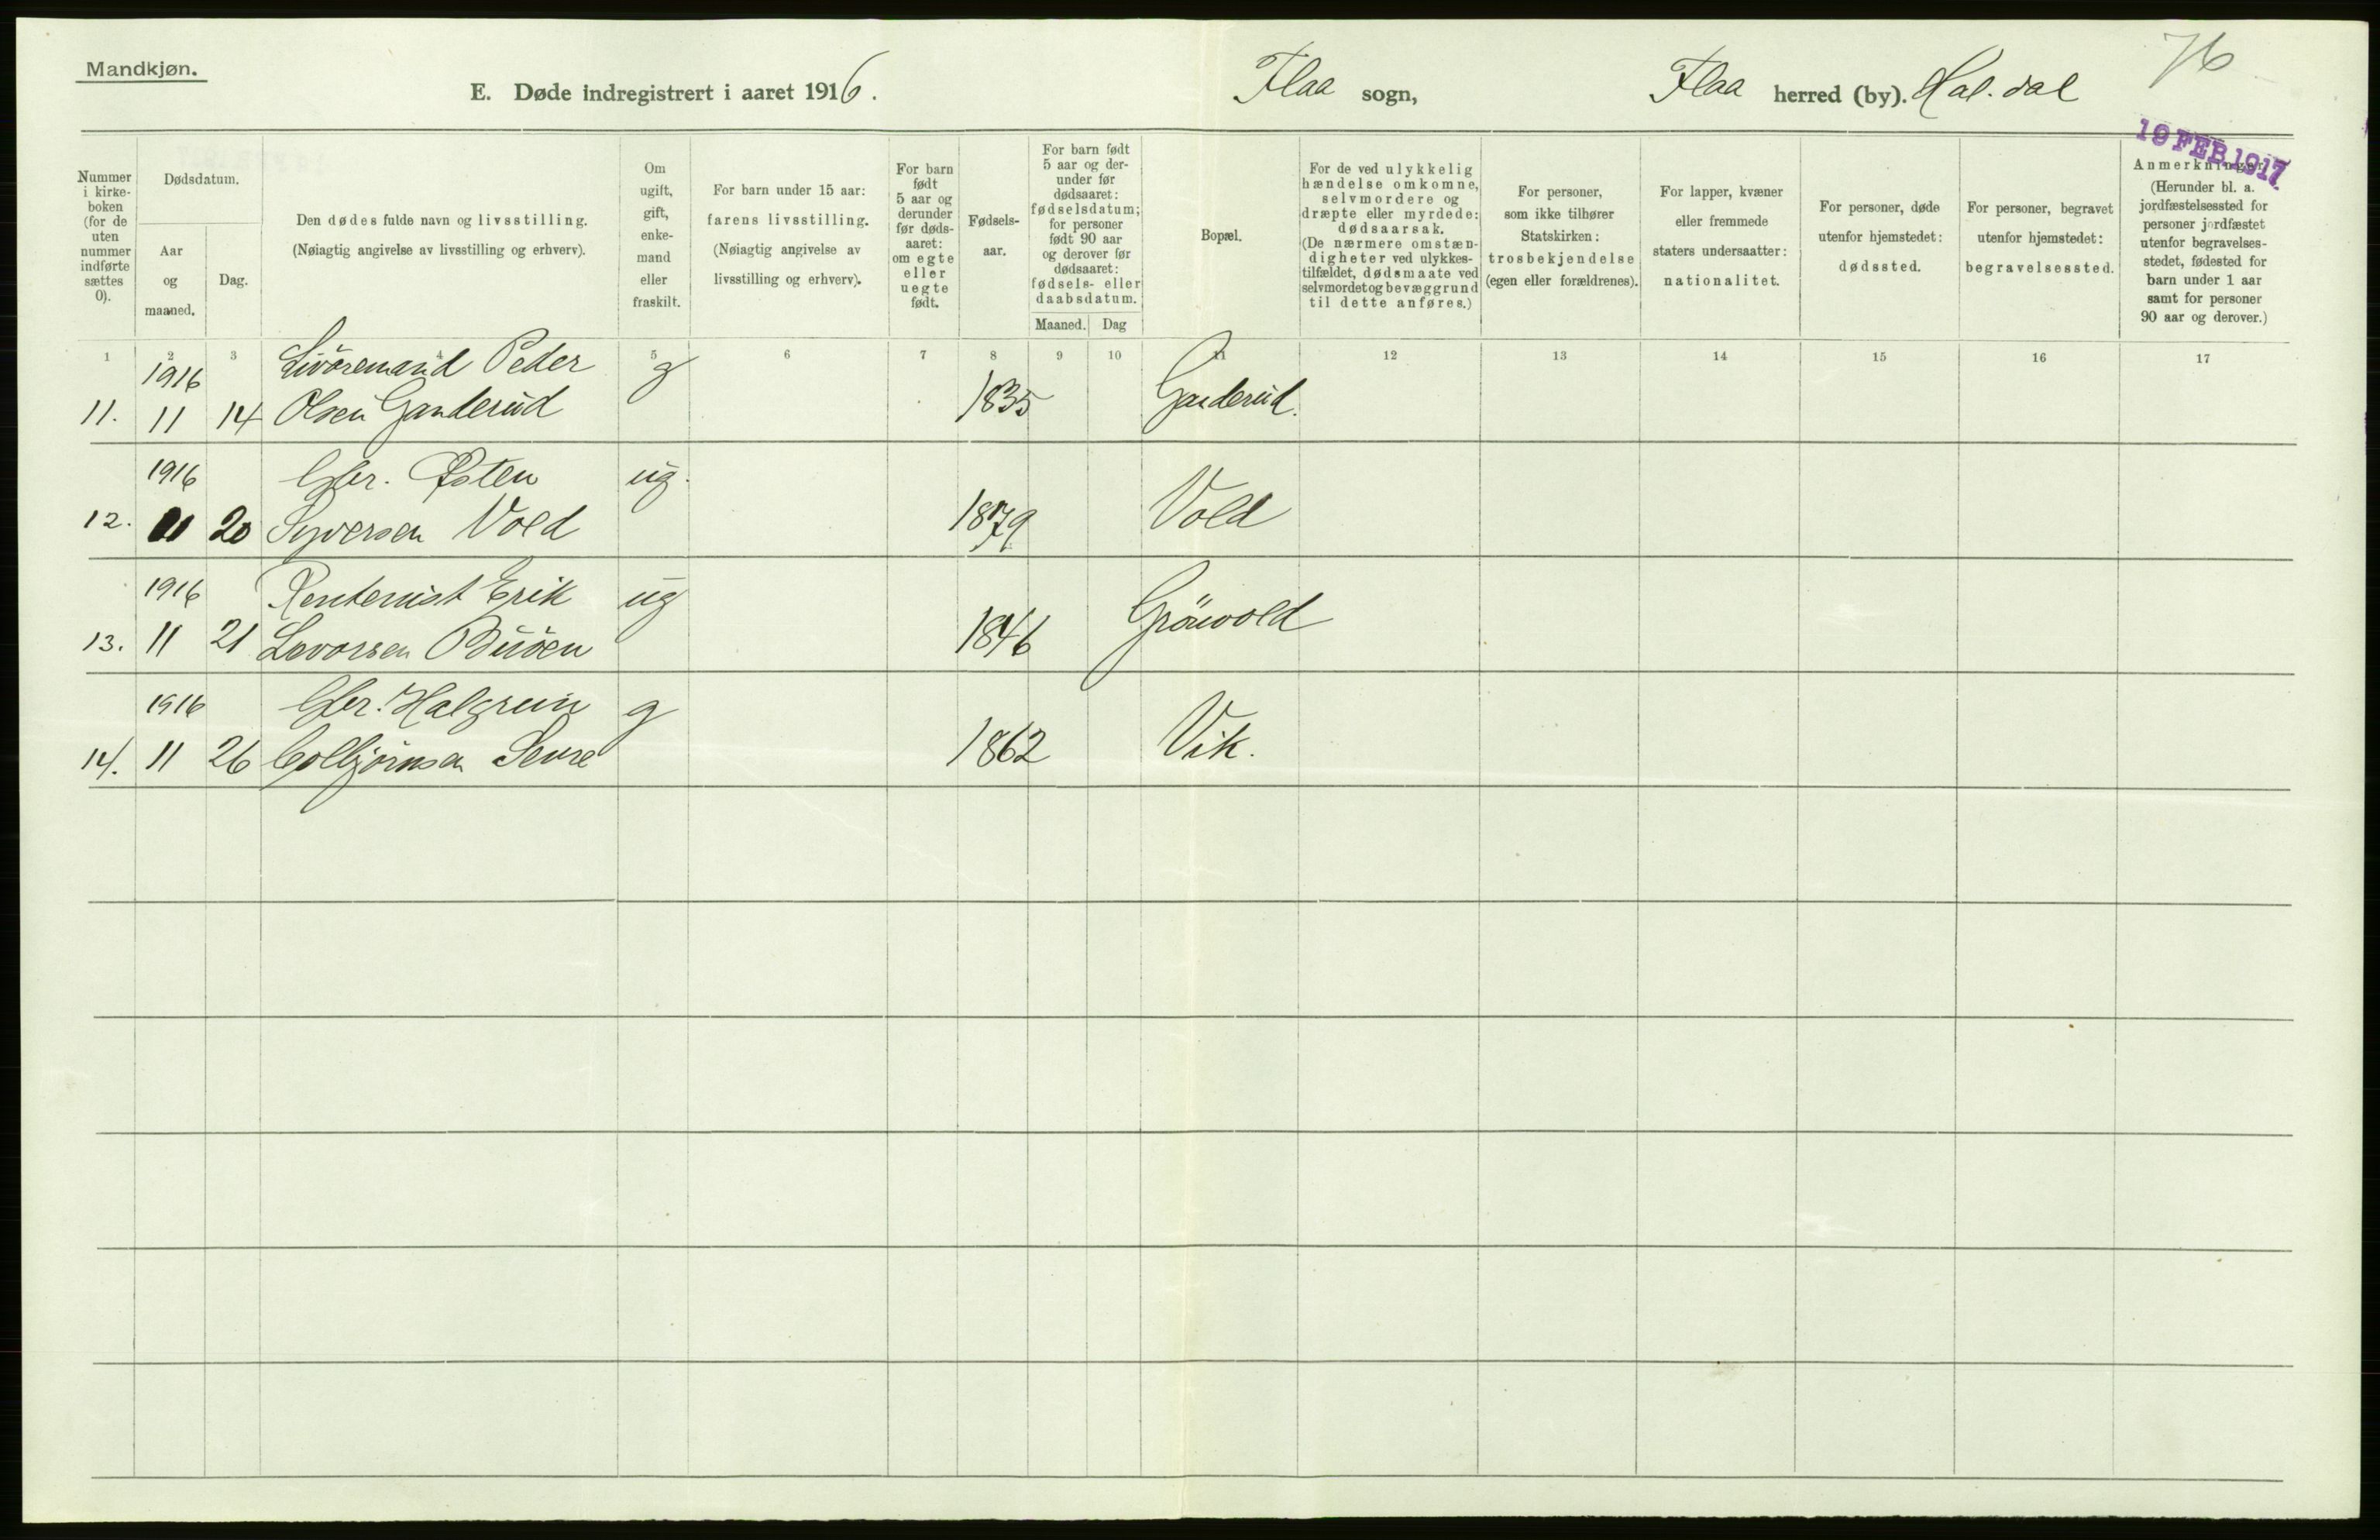 Mandkjøn.
E. Døde indregistrert i aaret 1916.
Flaa sogn,
Flaa herred (by). Hal.dal
76
19 FEB. 1917
Nummer
i kirke-
boken
(for de
uten
nummer
indførte
sættes
0).
Dødsdatum.
Aar
og
maaned.
Dag.
Den dødes fulde navn og livsstilling.
(Nøiagtig angivelse av livsstilling og erhverv).
Om
ugift,
gift,
enke-
mand
eller
fraskilt.
For barn under 15 aar:
farens livsstilling.
(Nøiagtig angivelse av
livsstilling og erhverv).
For barn
født
5 aar og
derunder
før døds-
aaret:
om egte
eller
uegte
født.
Fødsels-
aar.
For barn født
5 aar og der-
under før
dødsaaret:
fødselsdatum;
for personer
født 90 aar
og derover før
dødsaaret:
fødsels- eller
daabsdatum.
Maaned. Dag
Bopæl.
For de ved ulykkelig
hændelse omkomne,
selvmordere og
dræpte eller myrdede:
dødsaarsak.
(De nærmere omstæn-
digheter ved ulykkes-
tilfældet, dødsmaate ved
selvmordet og bevæggrund
til dette anføres.)
For personer,
som ikke tilhører
Statskirken:
trosbekjendelse
(egen eller forældrenes).
For lapper, kvæner
eller fremmede
staters undersaatter:
nationalitet.
For personer, døde
utenfor hjemstedet:
dødssted.
For personer, begravet
utenfor hjemstedet:
begravelsessted.
Anmerkninger.
(Herunder bl. a.
jordfæstelsessted for
personer jordfæstet
utenfor begravelses-
stedet, fødested for
barn under 1 aar
samt for personer
90 aar og derover.)
1 2 3 4 5 6 7 8 9 10 11 12 13 14 15 16 17
1916 Livöremand Peder g
11. 11 14 Olsen Ganderud 1835 Ganderud.
1916 Gbr. Østen ug.
12. 11 20 Syversen Vold 1879 Vold
1916 Rentenist Erik ug
13. 11 21 Levorsen Buöen 1846 Grönvold
1916 Gbr. Halgrim g
14. 11 26 Colbjörnsen Sevre 1862 Vik.